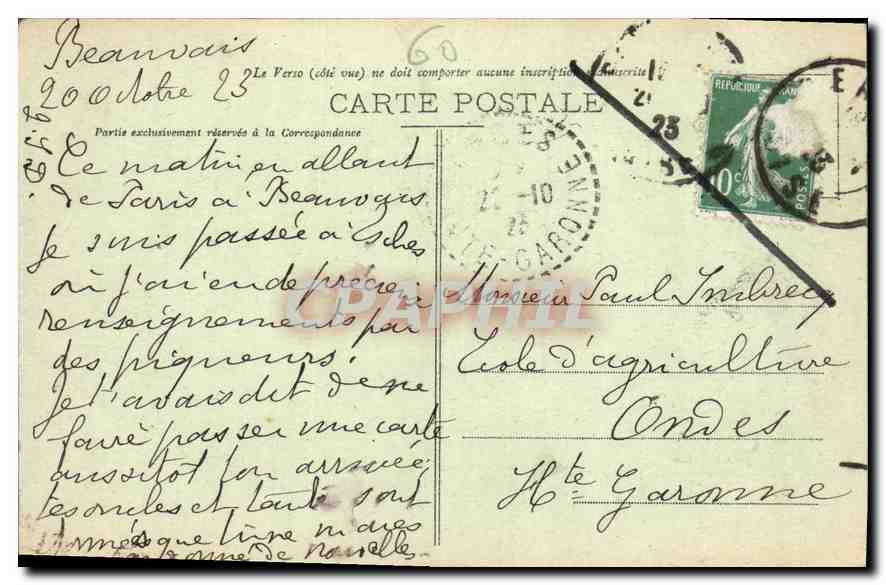 Beauvais
20 Octobre 23
60
Le Verso (côté vue) ne doit comporter aucune inscription manuscrite
CARTE POSTALE
Partie exclusivement réservée à la Correspondance
Ce matin en allant
de Paris à Beauvais
je suis passée à Esches
où j'ai eu de précieux
renseignements par
des piqueurs.
Je t'avais dit de me
faire passer une carte
aussitôt ton arrivée,
tes oncles et tante sont
que tu ne m'aies
donné de nouvelles
REPUBLIQUE FRANC
10c
POSTES
23
ES
2 -10
23
HTE-GARONNE
CPAPHIL
Monsieur Paul Imbrecq
Ecole d'agriculture
Ondes
Hte Garonne